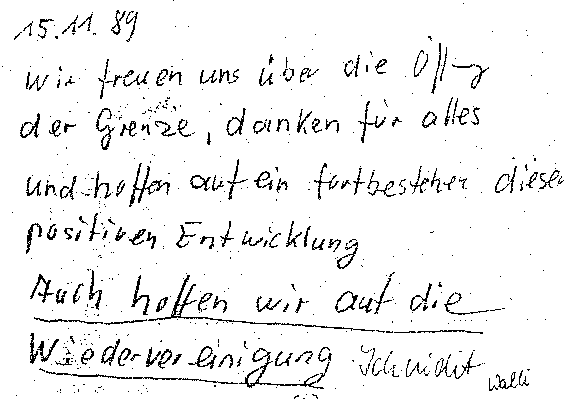 15.11.89
Wir freuen uns über die Öffng
der Grenze, danken für alles
und hoffen auf ein fortbestehen dieser
positiven Entwicklung
Auch hoffen wir auf die
Wiedervereinigung Schmidt Walli